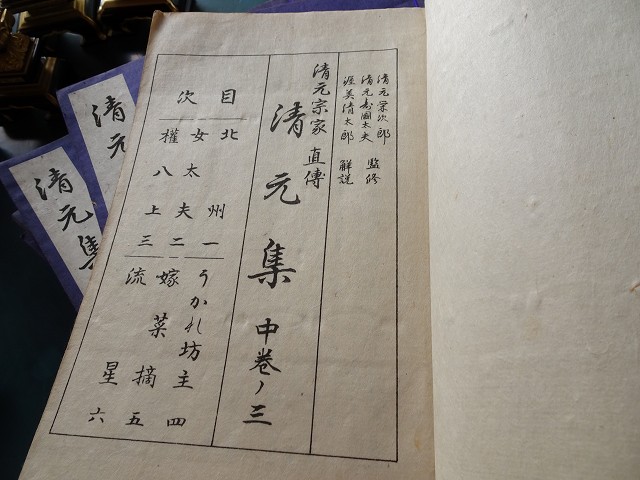 清元栄次郎
清元寿国太夫 監修
渥美清太郎 解説
清元宗家直傳
清元集 中巻ノ三
目次
北州 一
女太夫 二
權八上 三
うかれ坊主 四
嫁菜摘 五
流星 六
清元
清元集